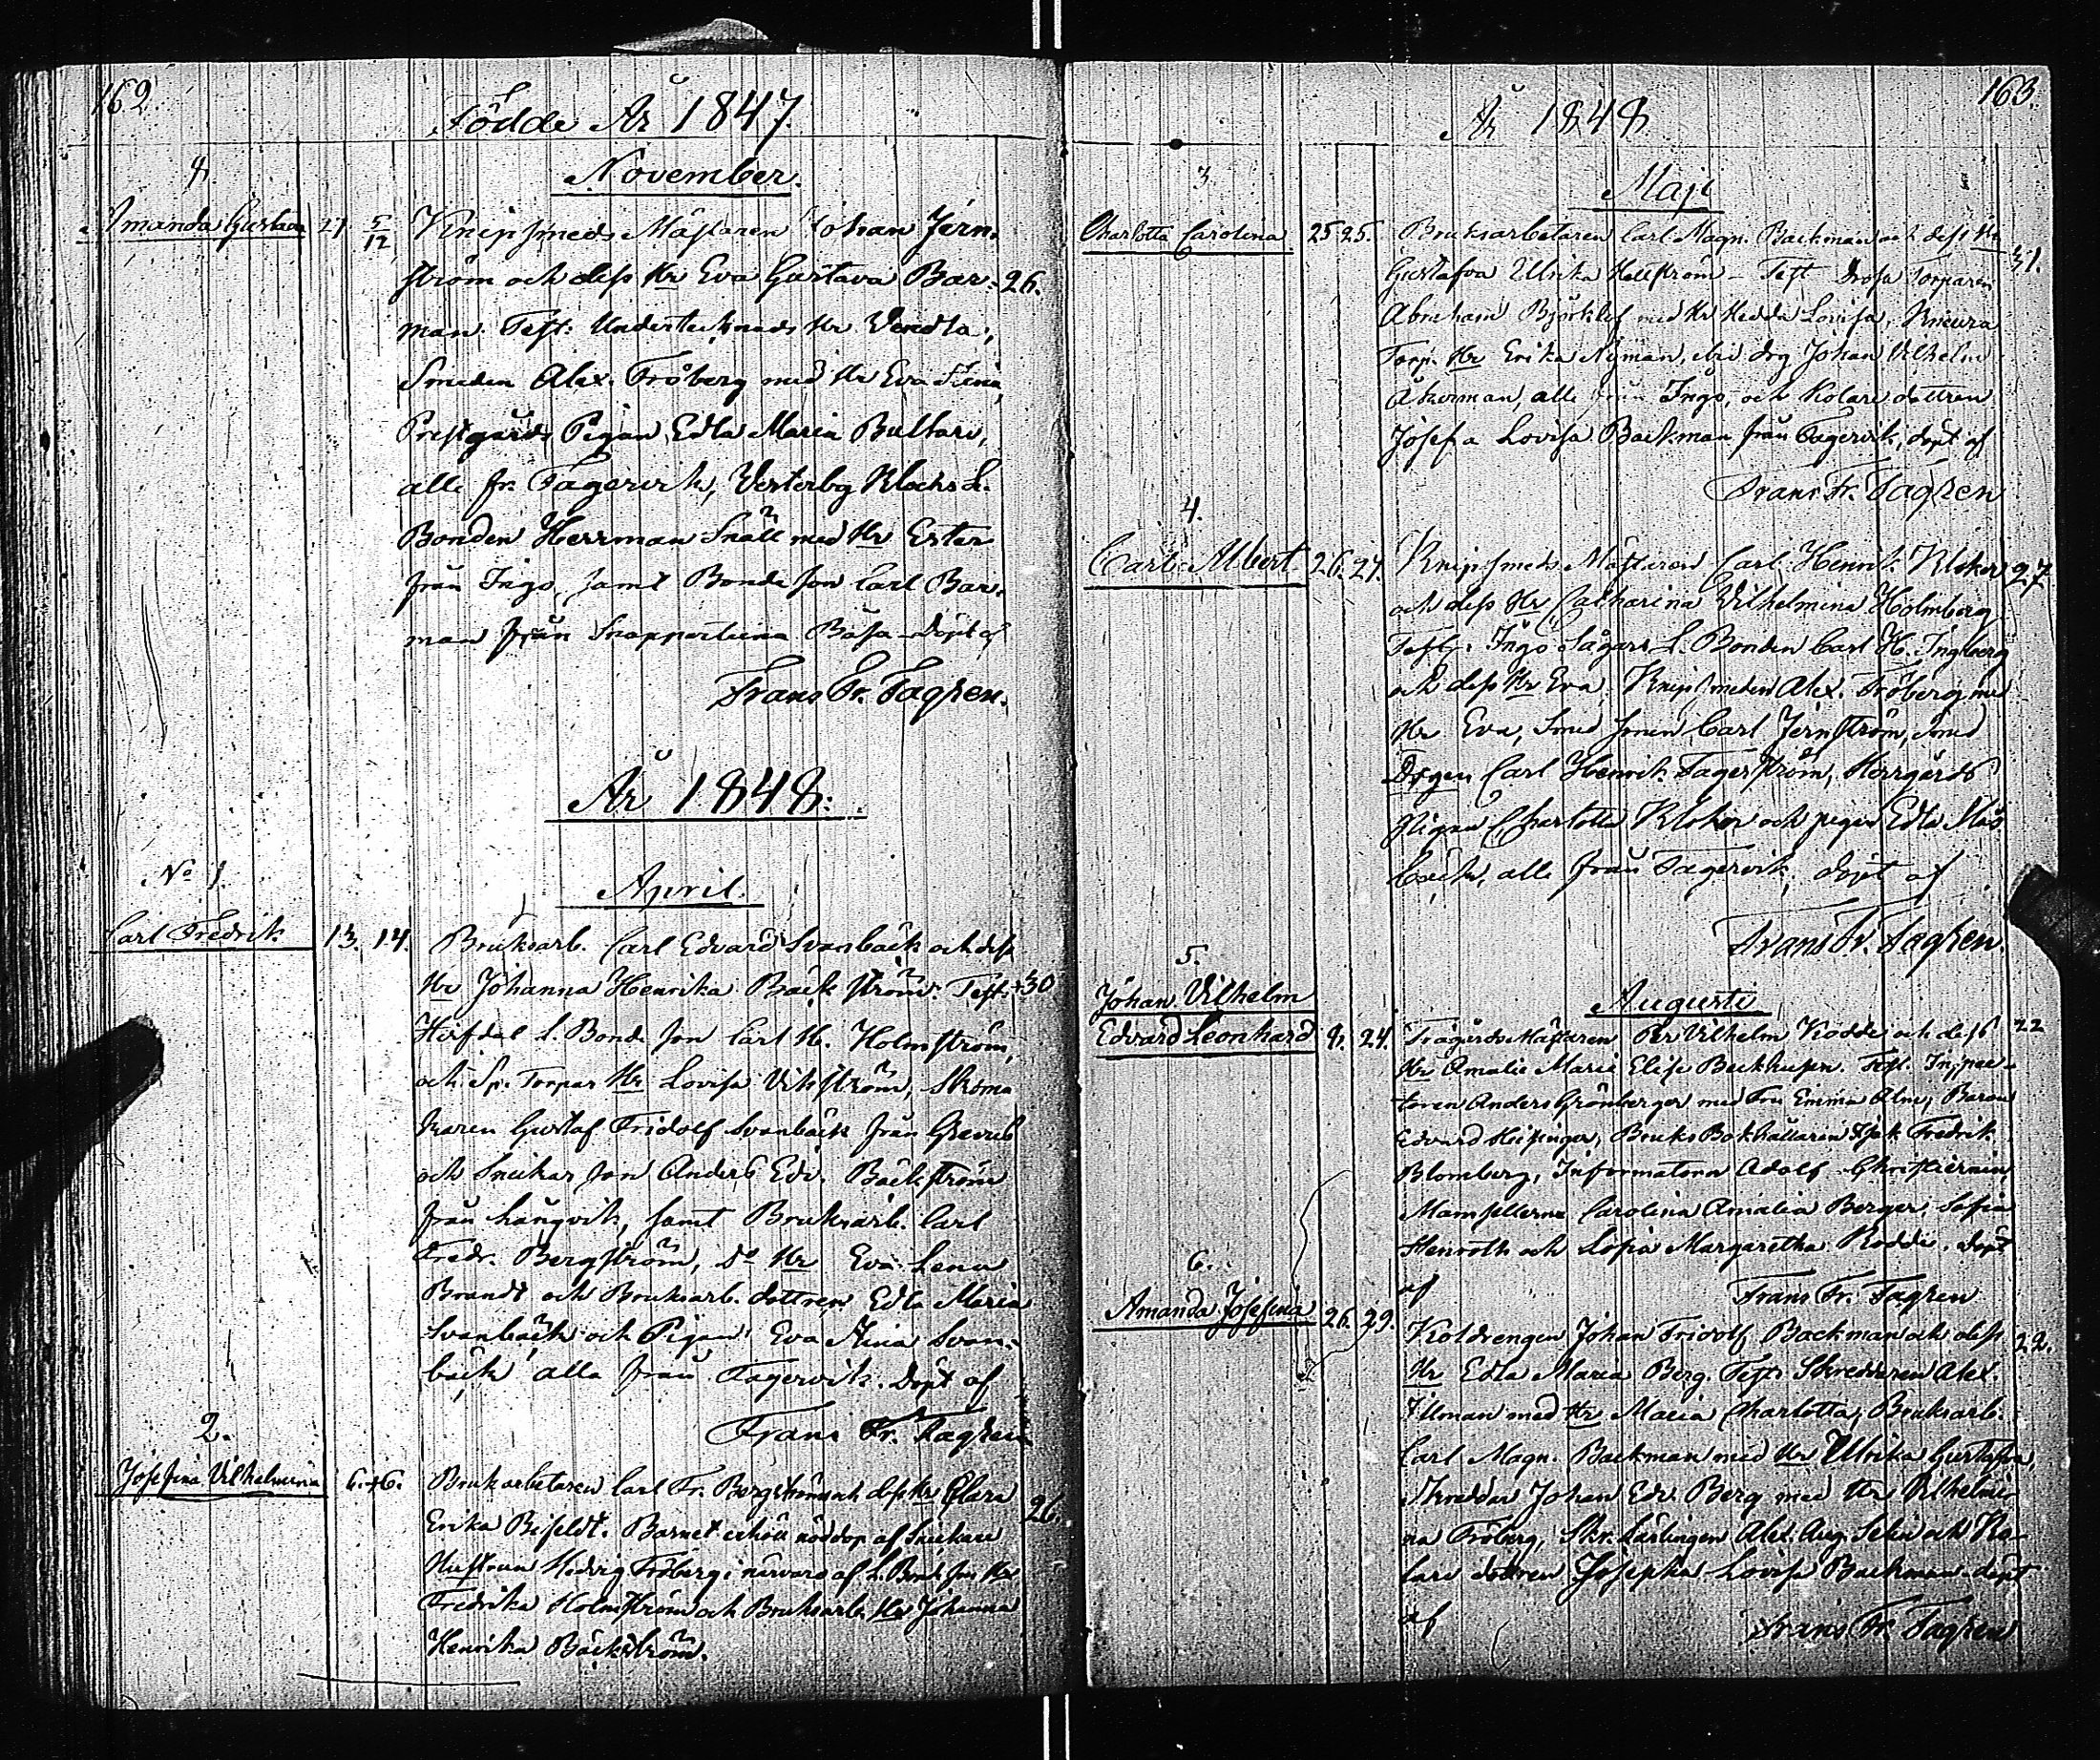 162
Födde År 1847.
8.
November.
Amanda Gustava 21. 5/12 Knipsmeds Mästaren Johan Jern-
ström och dess Hr Eva Gustava Bar- 26.
man. Test: Undertecknads Hr Vendla,
Smeden Alex. Fröberg med Hr Eva Stina,
Prestgårds Pigan Edla Maria Bultari,
alle fr. Fagervik, Vesterby Klocks L.
Bonden Herrman Snäll med Hr Ester
från Ingo, samt Bonde son Carl Bar-
man från Snappertuna Båsa – Döpt af
Frans Fr. Tagren.
År 1848.
No 1.
April.
Carl Fredrik 13. 14. Bruksarb. Carl Edvard Svanbäck och dess
Hr Johanna Henrika Bäckström. Test: 30
L. Bonde son Carl H. Holmström,
och Sp. Torpar Hr Lovisa Vikström, Skoma
karen Gustaf Fridolf Svanbäck från
och Snickar son Anders Edv. Bäckström
från Långvik, samt Bruksarb. Carl
Fredr. Bergström, Do Hr Eva Lena
Brandt och Bruksarb. dottren Edla Maria
Svanbäck och Pigan Eva Stina Svan-
bäck alla från Fagervik. Döpt af
Frans Fr. Tagren
2.
Josefina Vilhelmina 6. 6. Bruksarbetaren Carl Fr. Bergström och dess Hr Clara
Erika Beifeldt. Barnet erhöll nöddop af Snickare
Hustrun Hedvig Fröberg i närvaro af L. Bond. son Hr
Fredrika Holmström och Bruksarb. Hr Johanna 26.
Henrika Bäckström.
163.
År 1848
3.
Maji
Charlotta Carolina 25 25. Bruksarbetaren Carl Magn. Backman och dess Hr
Gustafva Ulrika Hellström – Test Torparen 31.
Abraham Björklöf med Hr Hedda Lovisa,
Torp. Hr Erika Nyman, drg Johan Vilhelm
Åkerman, alle från Ingo, och Kolare dottren
Josefa Lovisa Backman från Fagervik, döpt af
Frans Fr. Tagren
4.
Carl Albert. 26. 27. Knipsmeds Mästaren Carl Henrik Klokar 27
och dess Hr Catharina Vilhelmina Holmberg
Test: Ingo Sågars L. Bonden Carl H. Ingberg
och dess Hr Eva, Knipsmeden Alex. Fröberg med
Hr Eva, Smed sonen Carl Jernström, Smed
Drgen Carl Henrik Fagerström, Herrgårds
Pigan Charlotta Klokar och pigan Edla Mas
bäck, alle från Fagervik, döpt af
Frans Fr. Tagren.
5.
Augusti
Johan Vilhelm
Edvard Leonhard 8. 24. Trägårds Mästaren Per Vilhelm Rodde och dess 22
Hr Amalie Marie Elise Test. Inspec-
toren Anders Grönberger med Fru Emma Alm, Baron
Edvard Hisinger, Bruks Bokhållaren Fredrik
Blomberg, Informatorn Adolf Christiernin,
Mamsellerna Carolina Amalia Berger, Sofia
Stenroth och Sofia Margaretha Rodde. döpt
af Frans Fr. Tagren
6.
Amanda Josefina 26. 29. Koldrengen Johan Fridolf Backman och dess 22.
Hr Edla Maria Berg. Test: Skreddaren Alex.
Ullman med Hr Maria Charlotta, Bruksarb.
Carl Magn. Backman med Hr Ulrika Gustafva,
Skreddar Johan Edv. Berg med Hr Vilhelmi-
na Fröberg, Skr. Lärlingen Alex. Aug. Selin och Ko-
lare dottren Josepha Lovisa Backman. döpt
af Frans Fr. Tagren